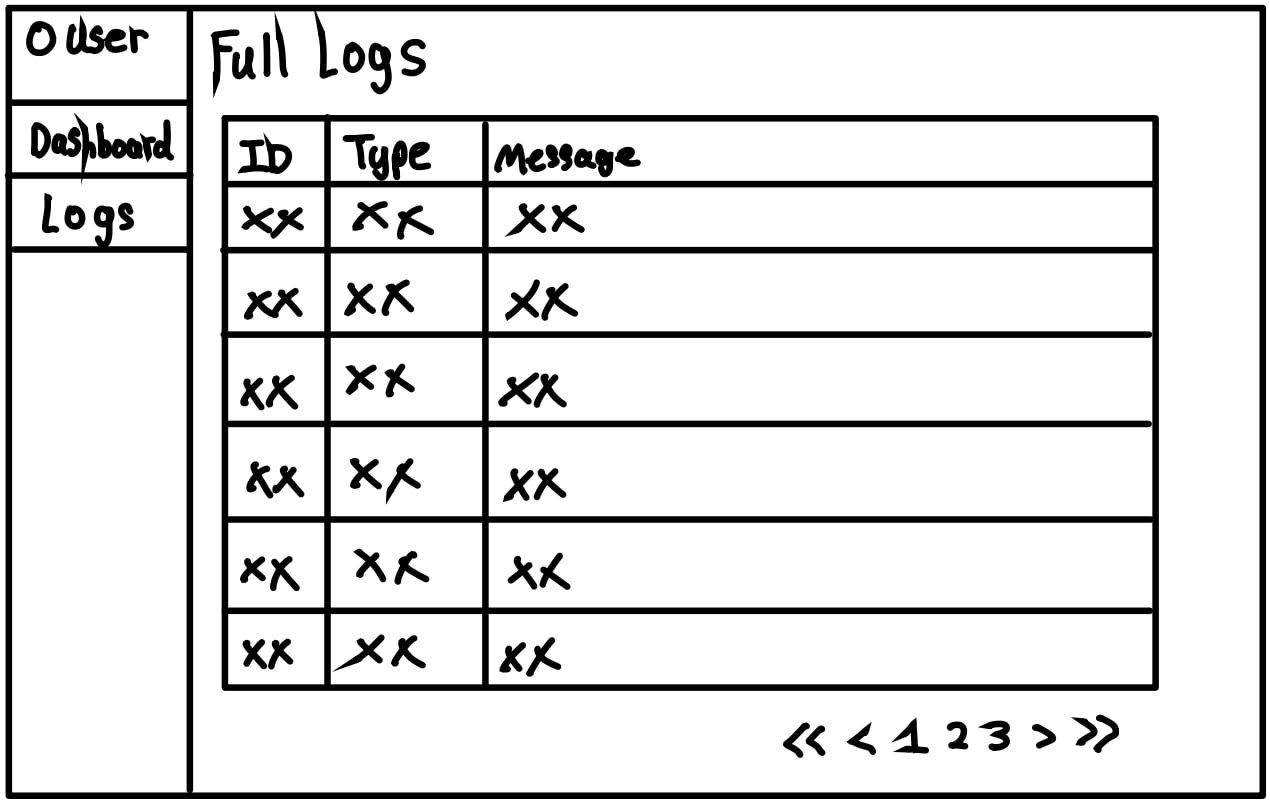 O user
Dashboard
Logs
Full Logs
ID Type Message
xx xx xx
xx xx xx
xx xx xx
xx xx xx
xx xx xx
xx xx xx
<< < 1 2 3 > >>